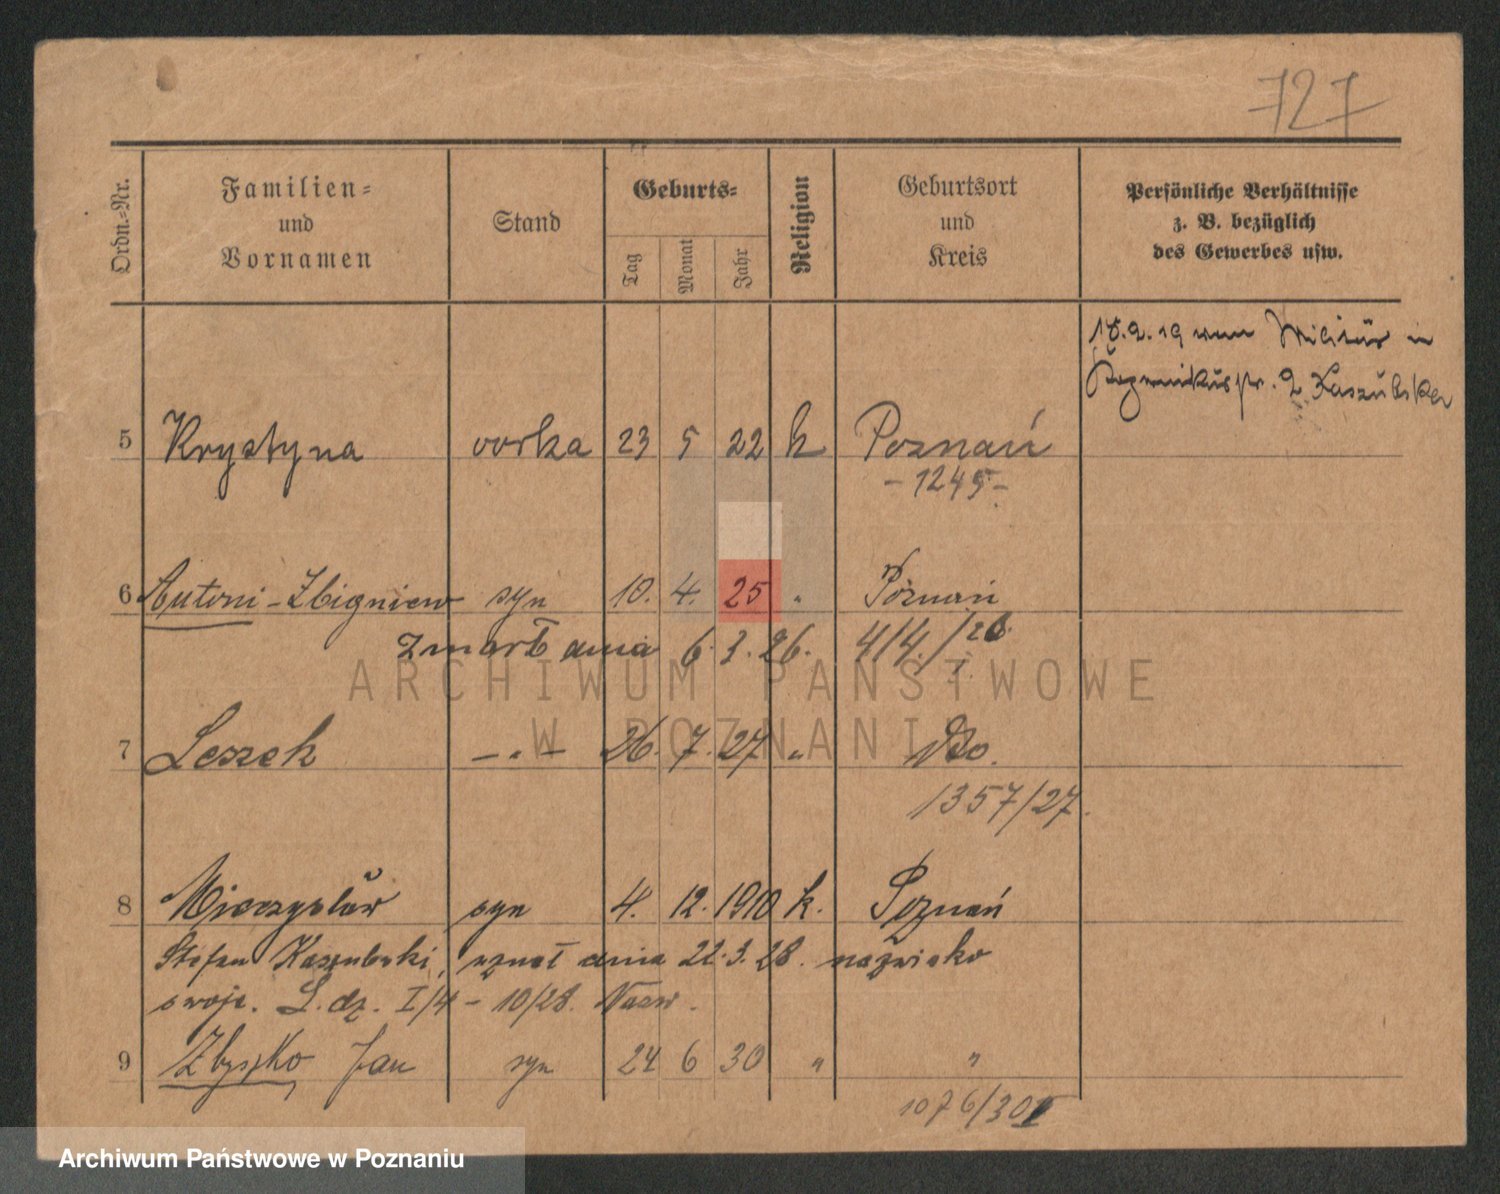 727
Ordn.-Nr.
Familien-
und
Vornamen
Stand
Geburts-
Tag
Monat
Jahr
Religion
Geburtsort
und
Kreis
Persönliche Verhältnisse
z. B. bezüglich
des Gewerbes usw.
18.2.19 vom Militär in
2 Kaszubska
5 Krystyna córka 23 5 22 k Poznań
-1245-
6 Antoni-Zbigniew syn 10. 4. 25 " Poznań
zmarł dnia 6.3.26. 414./26.
7 Leszek -"- 26. 7. 27 "
1357/27.
8 Mieczysław syn 4. 12. 1910 k. Poznań
Stefan Kaszubski, uznał dnia 22.3.28. nazwisko
swoje. L. dz. I/4 - 10/28. Nazw.
9 Zbyszko Jan syn 24 6 30 " "
1076/30
ARCHIWUM PAŃSTWOWE
W POZNANIU
Archiwum Państwowe w Poznaniu